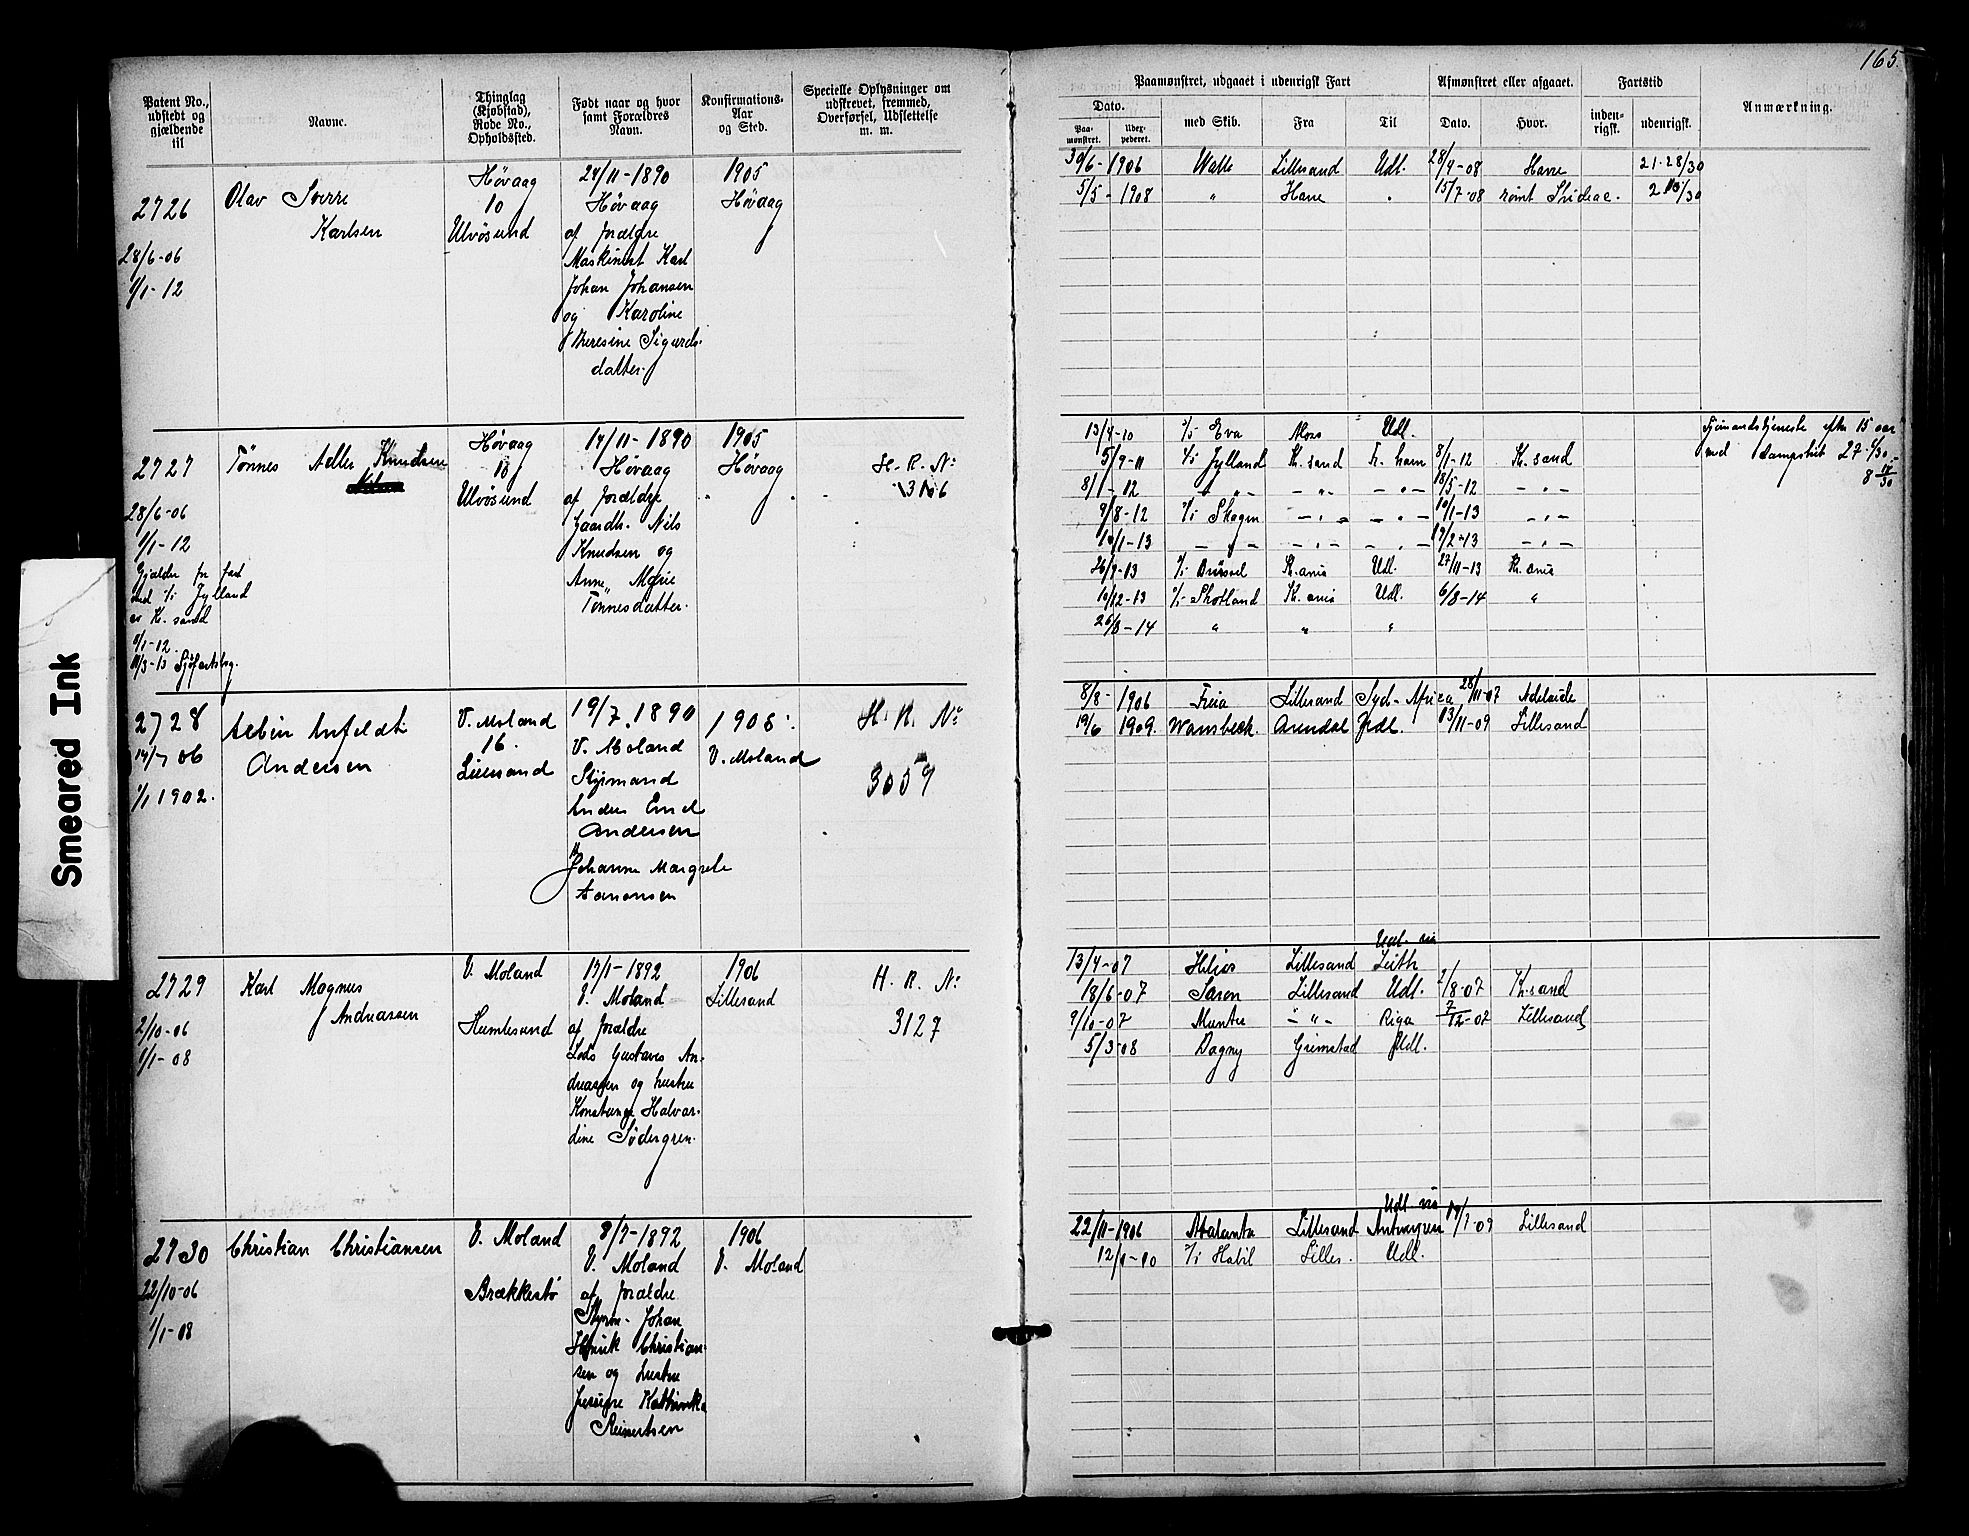 165.
Patent No., udstedt og gjældende til
Navne.
Thinglag (Kjøbstad), Rode No., Opholdssted.
Født naar og hvor samt Forældres Navn.
Konfirmations-Aar og Sted.
Specielle Oplysninger om udskrevet, fremmed, Overførsel, Udslettelse m. m.
Paamønstret, udgaaet i udenrigsk Fart
Afmønstret eller afgaaet.
Fartstid
Anmærkning.
Dato.
Paamønstret.
Udexpederet.
med Skib.
Fra
Til
Dato.
Hvor.
inden-rigsk.
udenrigsk.
2726
28/6-06
1/1-12
Olav Sverre
Karlsen
Høvaag
10
Ulvösund
24/11-1890
Høvaag
af forældre
Maskinist Karl
Johan Johansen
og Karoline
Theresine Sigurds-
datter.
1905
Høvaag
30/6-1906 Walle Lillesand Udl. 28/4-08 Havre 21-28/30
5/5-1908 " Havre 15/7-08 rømt
2727
28/6-06
1/1-12
Gjælder for fart
med s/s Jylland
av Kr.sand
Tönnes Adler Knudsen
Høvaag
10
Ulvösund
17/11-1890
Høvaag
af forældre
Gaardb. Nils
Knudsen og
Anne Marie
Tönnesdatter.
1905
Høvaag
H. R. No
3106
13/4-10 s/s Eva Moss Udl.
5/9-11 s/s Jylland Kr.sand Fr.havn 8/1-12 Kr.sand
8/1-12 - " - - " - - " - 18/5-12 - " -
9/8-12 s/s Skagen - " - - " - 10/1-13 - " -
10/1-13 - " - - " - - " - 19/2-13 - " -
26/9-13 s/s Kr.ania Udl. 27/11-13 Kr.ania
10/12-13 s/s Skotland Kr.ania Udl. 6/8-14 "
26/8-14 " " "
Sjömandstjeneste efter 15 aar
med dampskib 27
2728
14/7 06
1/1 1902.
Albin Anfeldt
Andersen
V. Moland
16.
Lillesand
19/7.1890
V. Moland
Styrmand
Anders Emil
Andersen
Johanne Margrete
Aanonsen
1906
V. Moland
H. R. No
3059
8/8-1906 Freia Lillesand Syd-Africa 28/11-07 Adelaide
19/6 1909. Wansbeck. Arendal Udl. 13/11-09 Lillesand
2729
2/10-06
1/1-08
Karl Magnus
Andreassen
V. Moland
Humlesund
17/1-1892
V. Moland
af forældre
Lods Gustavus An-
dreassen og hustru
Konstanse Halvar-
dine Södergren.
1906
Lillesand
H. R. No
3127
13/4-07 Helios Lillesand Udl. via Leith
18/6-07 Saron Lillesand Udl. 1/8-07 Kr.sand
9/10-07 Munter - " - Riga 7/12-07 Lillesand
5/3-08 Dagny Grimstad Udl.
2730
22/10-06
1/1-08
Christian Christiansen
V. Moland
Brækkestö
8/7-1892
V. Moland
af forældre
Styrm. Johan
Henrik Christian-
sen og hustru
Kathinka
Reinertsen
1906
V. Moland
22/11-1906 Atalanta Lillesand Udl. via Antwerpen Lillesand
s/s Habil Lilles. Udl.
Smeared Ink